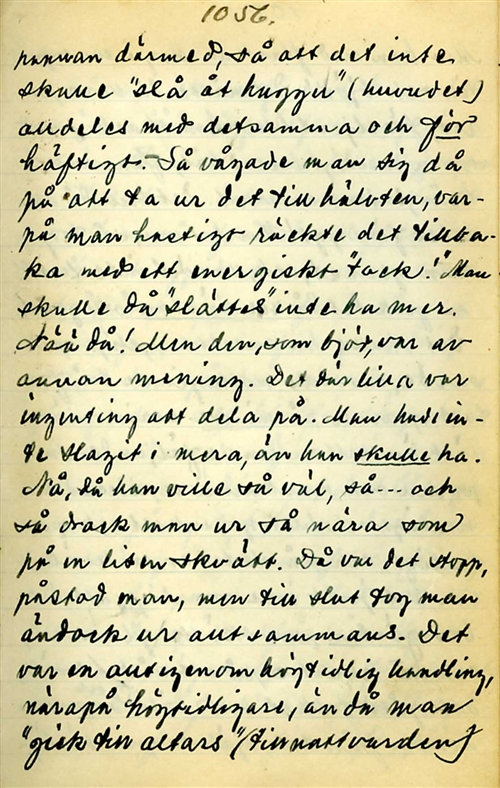 1056.
pannan därmed, så att det inte
skulle "slå åt huggu" (huvudet)
alldeles med detsamma och för
häftigt. - Så vågade man sig då
på att ta ur det till hälvten, var-
på man hastigt räckte det tillba-
ka med ett energiskt "tack!" Man
skulle då "slättes" inte ha mer.
Nää då! Men den, som bjöd, var av
annan mening. Det där lilla var
ingenting att dela på. Man hade in-
te slagit i mera, än han skulle ha.
Nå, då han ville så väl, så --- och
så drack man ur så nära som
på en liten skvätt. Då var det stopp,
påstod man, men till slut tog man
ändock ur allt sammans. Det
var en alltigenom högtidlig handling,
närapå högtidligare, än då man
"gick till altars" (till nattvarden)